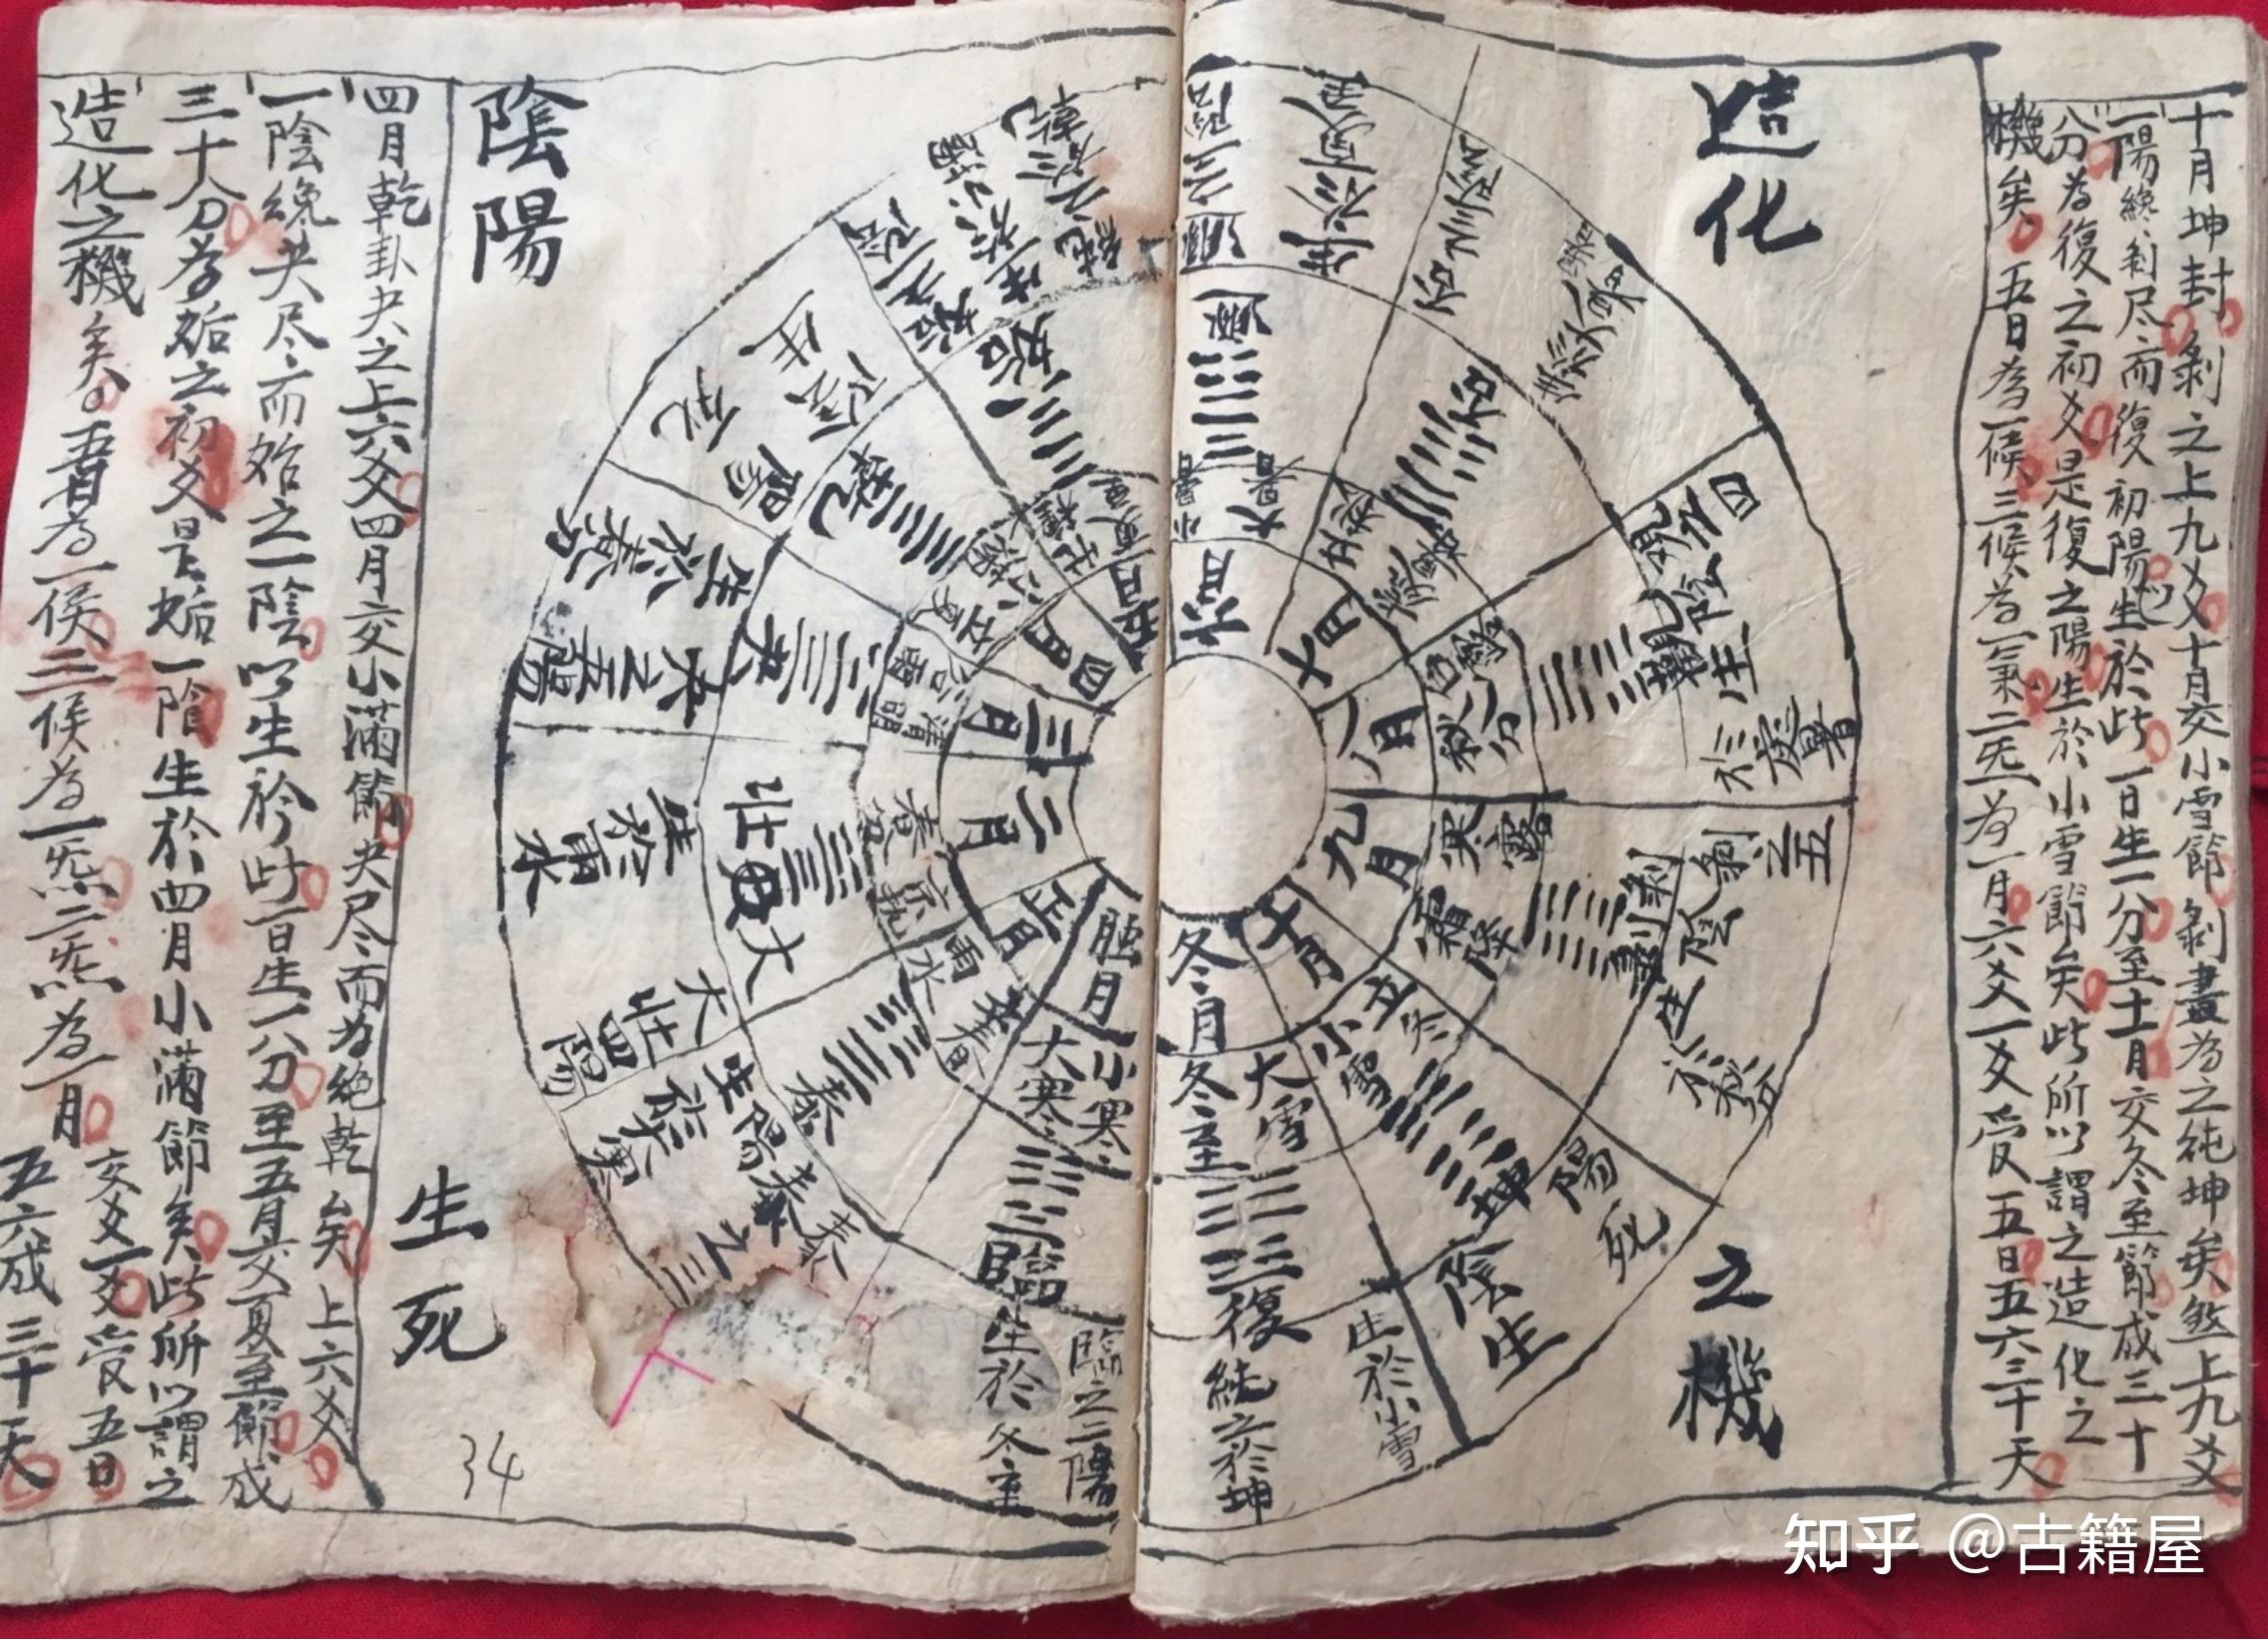 十月坤封剝之上九爻十月交小雪節剝盡為之純坤矣然上九爻
一陽纔剝尽而復初陽生於此一日生一分至十一月交冬至節成三十
分為復之初爻是復之陽生於小雪節矣此所以謂之造化之
機矣五日為一候三候為一炁二炁為一月六爻一爻受五日五六三十天
造化
之機
陰陽
生死
六月
小暑
大暑
遯
七月
立秋
處暑
否
八月
白露
秋分
觀
觀之四
陰生
於處暑
九月
寒露
霜降
剝
剝之五
陰生
於秋分
十月
立冬
小雪
坤
陽死
陰生
冬月
大雪
冬至
復
純之於坤
生於小雪
臘月
小寒
大寒
臨
臨之二陽
生於
冬至
正月
雨水
泰
泰之三
陽生
於大寒
二月
大壯
大壯四陽
生於
雨水
三月
清明
谷雨
夬
夬之五陽
生於
春分
四月
立夏
小滿
乾
陽死
陰生
五月
芒種
夏至
姤
四月乾卦夬之上六爻四月交小滿節夬尽而為純乾矣上六爻
一陰纔夬尽而姤之一陰以生於此一日生一分至五月交夏至節成
三十分為姤之初爻是姤一陰生於四月小滿節矣此所以謂之
造化之機矣五日為一候三候為一炁二炁為一月
六爻一爻受五日
五六成三十天
34
知乎 @古籍屋